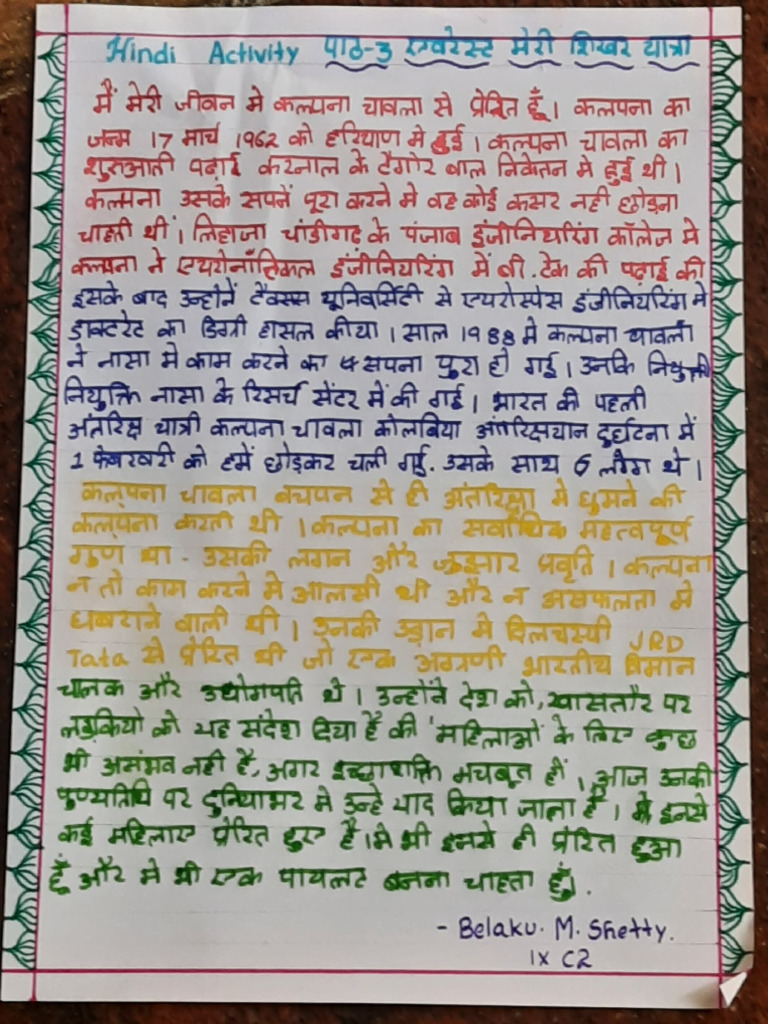 Hindi Activity पाठ-3 एवरेस्ट मेरी शिखर यात्रा
मैं मेरी जीवन मे कल्पना चावला से प्रेरित हूँ। कलपना का
जन्म 17 मार्च 1962 को हरियाण मे हुई। कल्पना चावला का
शुरुआती पढ़ाई करनाल के टैगोर बाल निकेतन मे हुई थी।
कल्पना उसके सपनें पूरा करने मे वह कोई कसर नही छोड़ना
चाहती थीं। लिहाजा चांडीगढ़ के पंजाब इंजीनियरिंग कॉलेज मे
कल्पना ने एयरोनॉटिकल इंजीनियरिंग में बी.टेक की पढ़ाई की
इसके बाद उन्होनें टैक्सस यूनिवर्सिटी से एयरोस्पेस इंजीनियरिंग मे
डाक्टरेट का डिग्री हासल कीया। साल 1988 मे कल्पना चावला
ने नासा मे काम करने का सपना पुरा हो गई। उनकि
नियुक्ति नासा के रिसर्च सेंटर में की गई। भारत की पहली
अंतरिक्ष यात्री कल्पना चावला कोलंबिया अंतरिक्षयान दुर्घटना में
1 फेबरवरी को हमें छोड़कर चली गई. उसके साथ 6 लोग थे।
कल्पना चावला बचपन से ही अंतरिक्षा मे घुमने की
कल्पना करती थी। कल्पना का सर्वाधिक महत्वपूर्ण
गुण था - उसकी लगन और जुझार प्रवृति। कल्पना
न तो काम करने मे आलसी थी और न असफलता मे
घबराने वाली थी। उनकी उड़ान मे दिलचस्पी JRD
Tata से प्रेरित थी जो एक अग्रणी भारतीय विमान
चालक और उधोगपति थे। उन्होंने देश को, खासतौर पर
लड़कियो को यह संदेश दिया है की 'महिलाओं के लिए कुछ
भी असंभव नही है, अगर इच्छाशक्ति मचबूत हों। आज उनकी
पुण्यतिथि पर दुनियाभर मे उन्हे याद किया जाता है। इनसे
कई महिलाए प्रेरित हुए है। मे भी इनसे ही प्रेरित हुआ
हूँ और मे भी एक पायलट बनना चाहता हूँ।.
- Belaku. M. Shetty.
IX C2